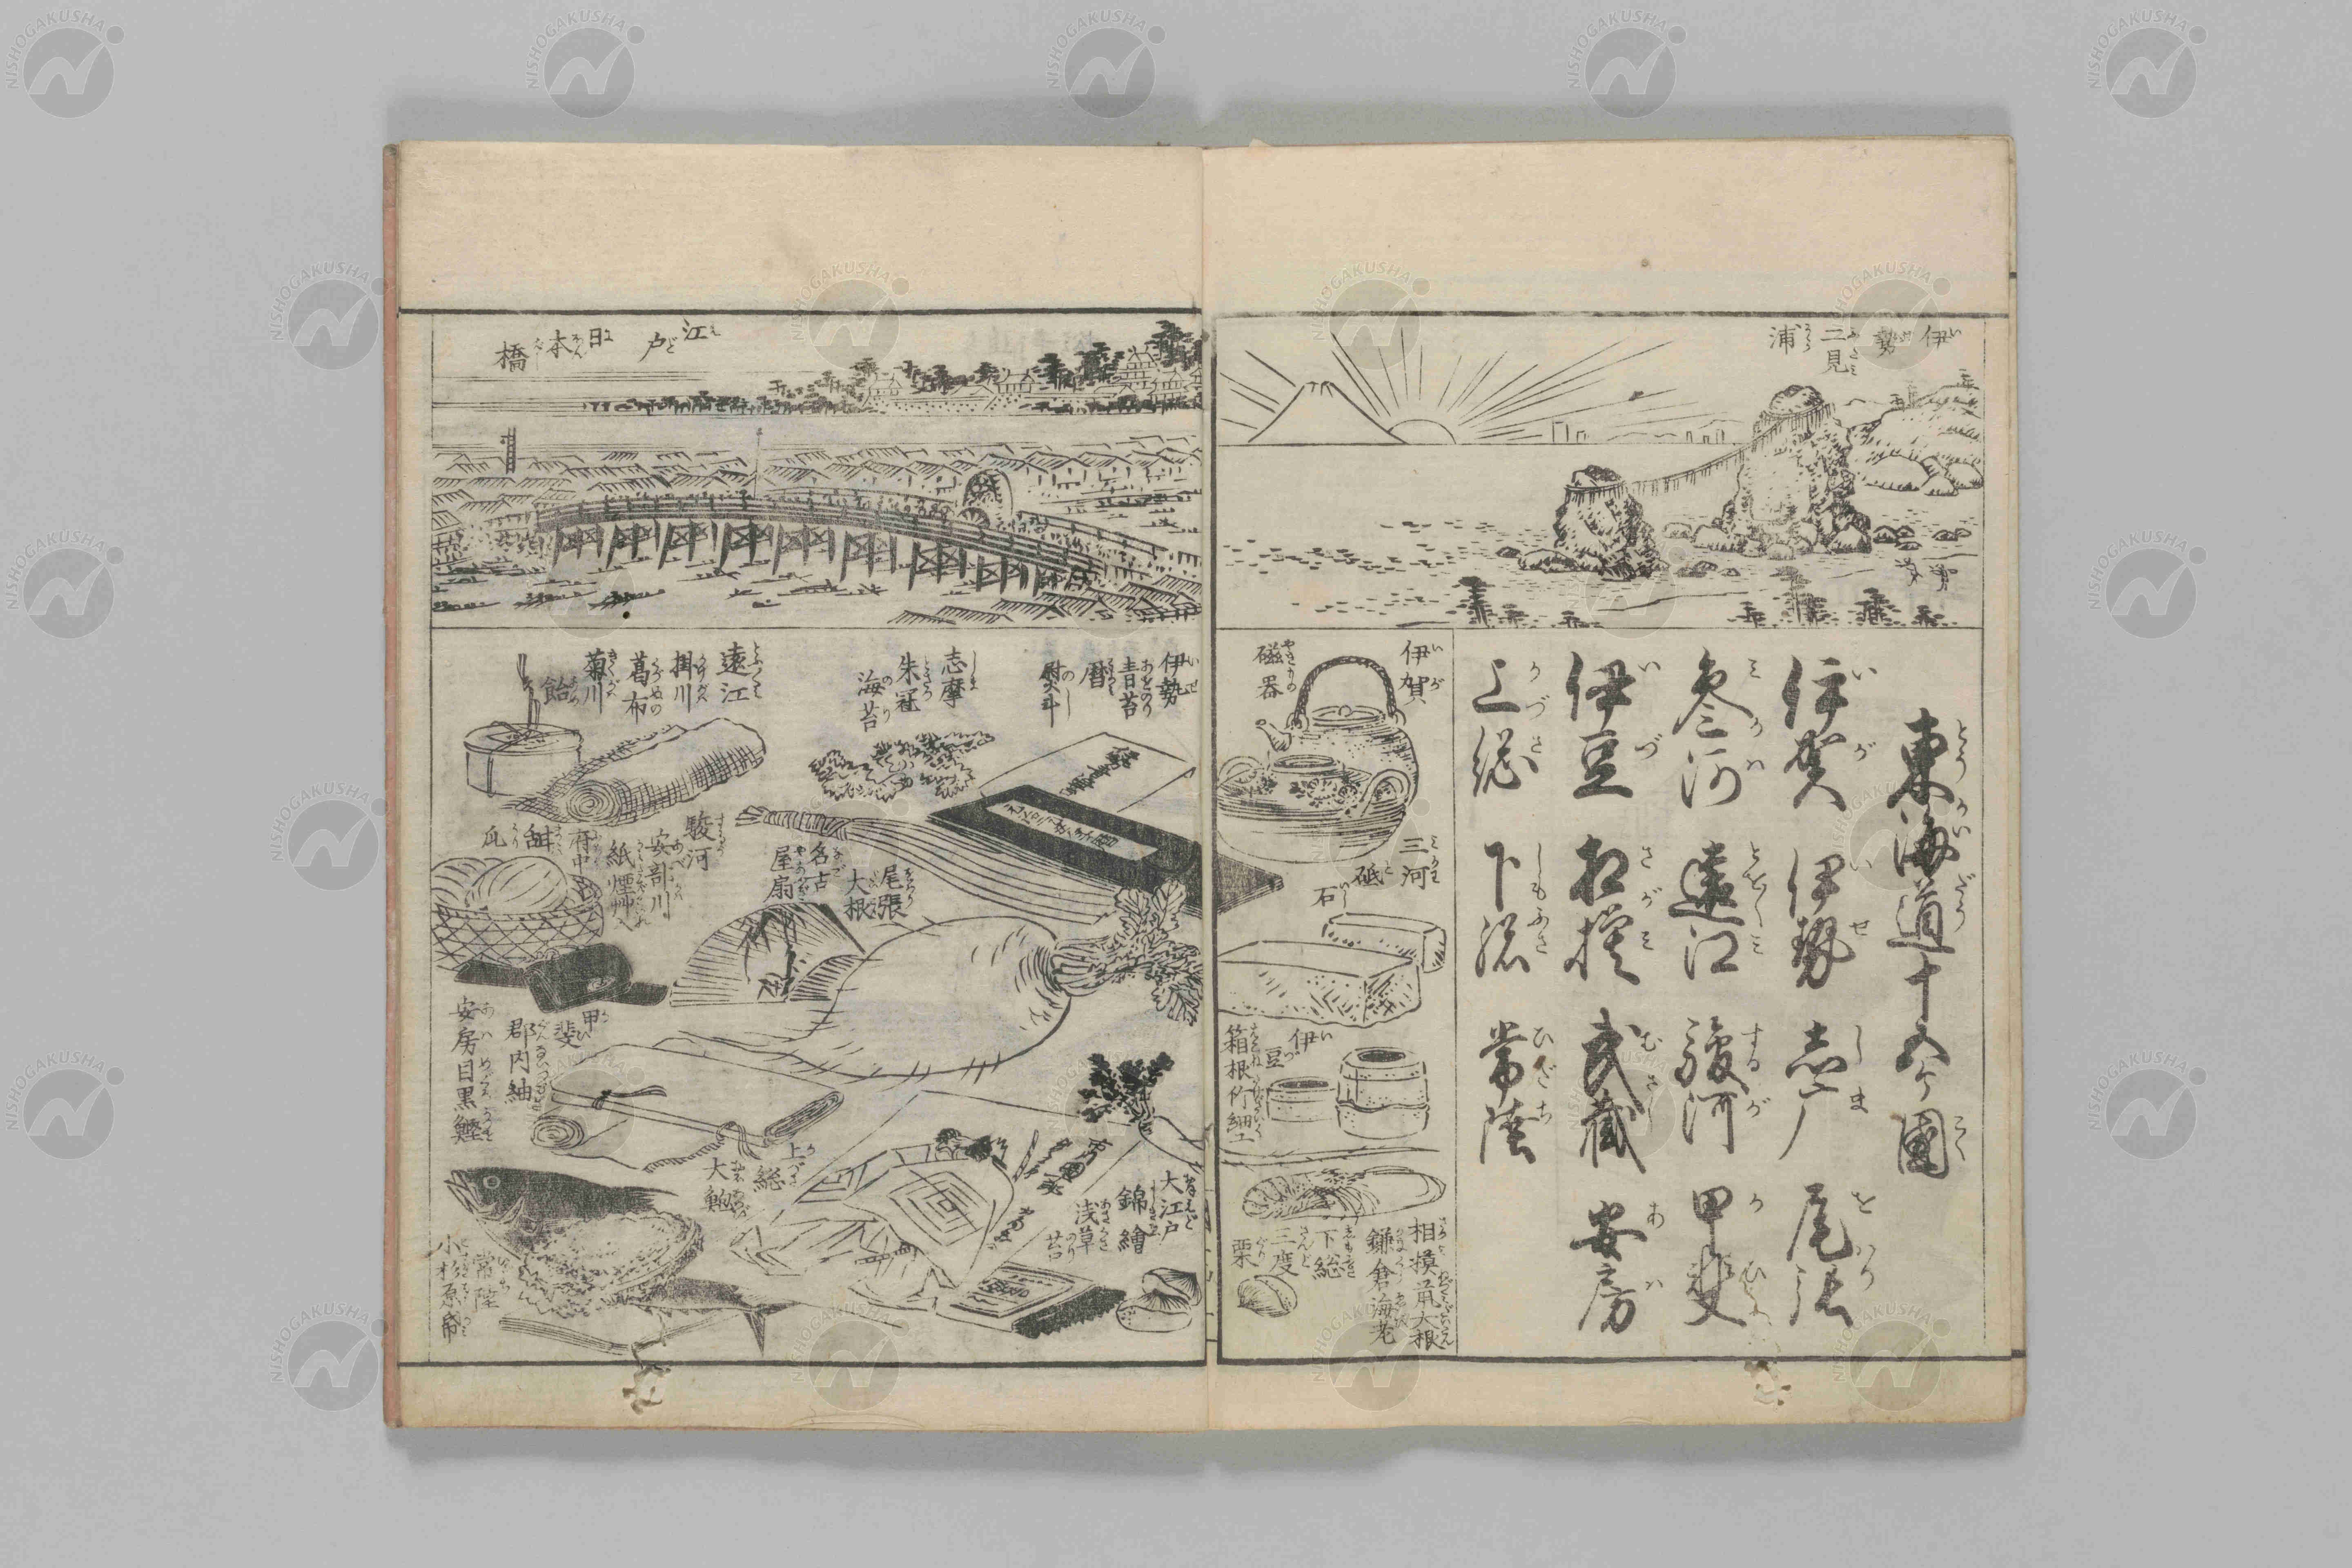 伊勢
二見
浦
東海道十五ケ國
伊賀 伊勢 志广 尾張
参河 遠江 駿河 甲斐
伊豆 相模 武蔵 安房
上総 下総 常陸
伊賀
磁器
三河
砥石
伊豆
箱根竹細工
相模
大根
鎌倉海老
下総
三度
栗
江戸
日本橋
伊勢
青苔
暦
熨斗
志摩
海苔
遠江
掛川
葛布
菊川
飴
駿河
安部川
紙煙艸入
府中
瓜
尾張
大根
名古
屋扇
甲斐
郡内紬
安房目黒鰹
大江戸
錦繪
浅草
苔
上総
大鮑
常陸
小杉原帋
NISHOGAKUSHA